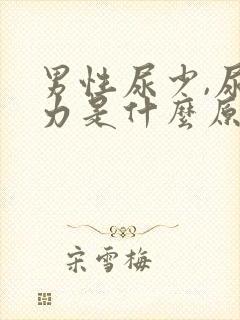 男性尿少,尿
力是什麼原
宋雪梅